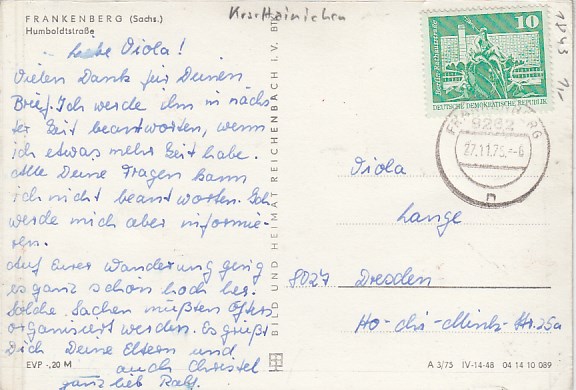 FRANKENBERG (Sachs.)
Humboldtstraße
Krs. Hainichen
Liebe Viola!
Vielen Dank für Deinen
Brief. Ich werde ihn in näch-
ster Zeit beantworten, wenn
ich etwas mehr Zeit habe.
Alle Deine Fragen kann
ich nicht beantworten. Ich
werde mich aber informie-
ren.
Auf Eurer Wanderung ging
es ganz schön hoch her.
Solche Sachen müßten öfters
organisiert werden. Es grüßt
Dich Deine Eltern und
auch Christel
ganz lieb Ralf.
EVP -,20 M
BILD UND HEIMAT REICHENBACH I. V.
10
Berlin-Rathausstraße
DEUTSCHE DEMOKRATISCHE REPUBLIK
FRANKENBERG
9262
27.11.75
n
Viola
Lange
8027 Dresden
Ho-chi-Minh-Str. 25a
A 3/75 IV-14-48 04 14 10 089